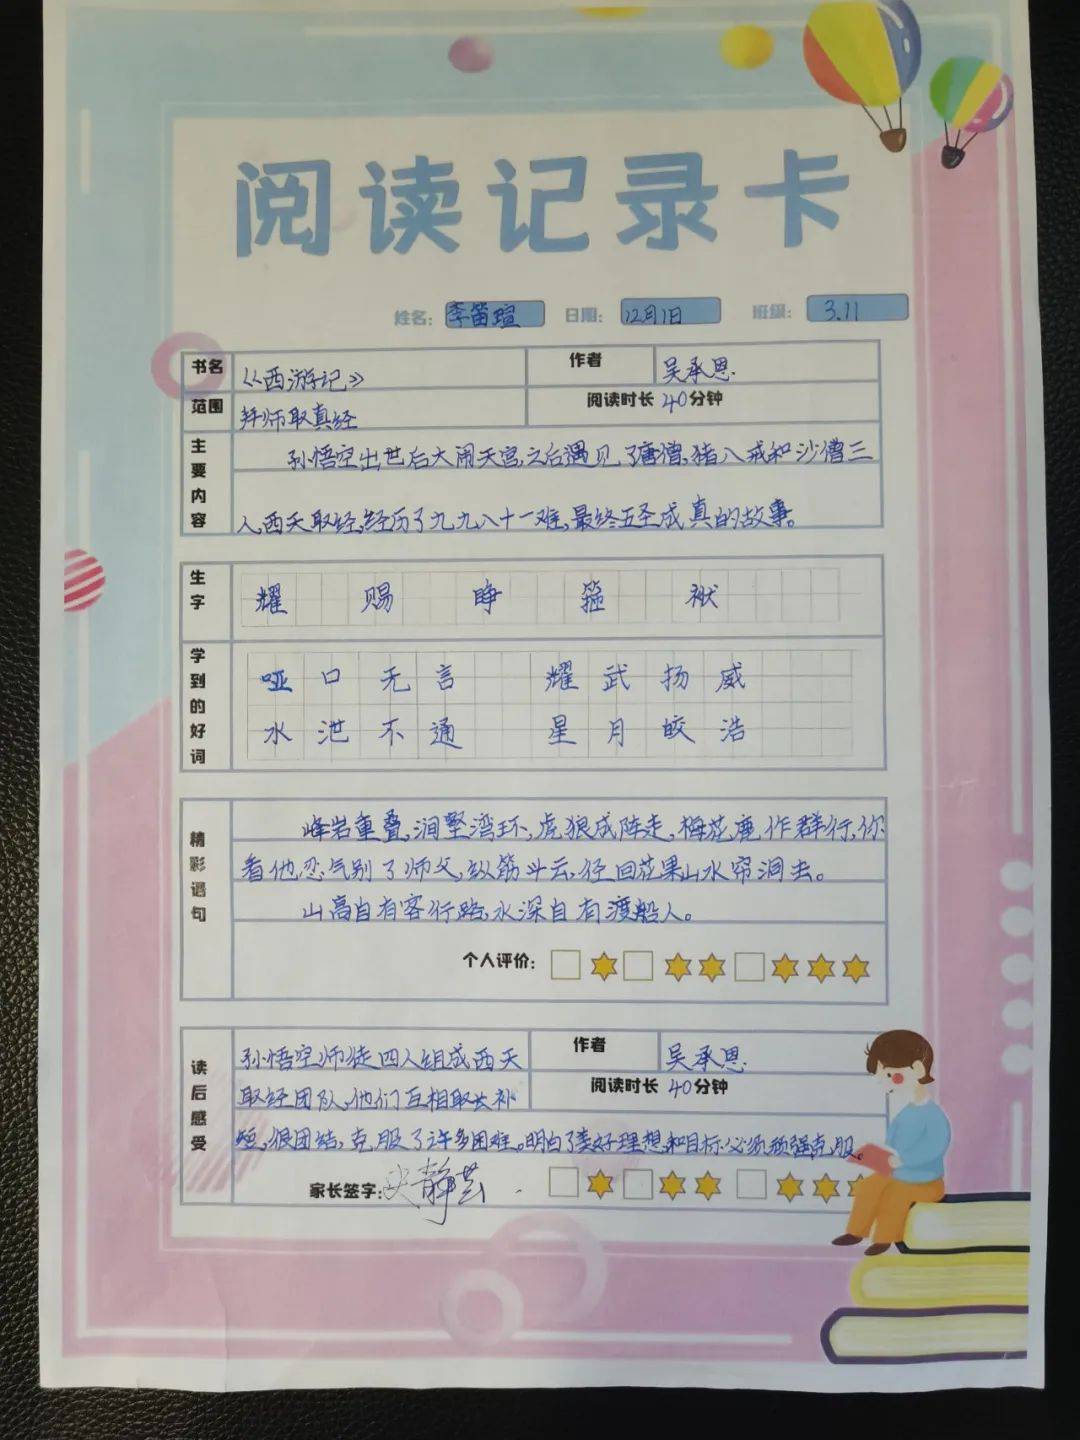 阅读记录卡
姓名: 李笛瑄 日期: 12月1日 班级: 3.11
书名 《西游记》 作者 吴承恩
范围 拜师取真经 阅读时长 40分钟
主要内容
孙悟空出世后大闹天宫,之后遇见了唐僧,猪八戒和沙僧三
人,西天取经,经历了九九八十一难,最终五圣成真的故事。
生字
耀 赐 睁 箍 袱
学到的好词
哑口无言 耀武扬威
水泄不通 星月皎浩
精彩语句
峰岩重叠,涧壑湾环,虎狼成阵走,梅花鹿作群行,你
看他忍气别了师父,纵筋斗云,径回花果山水帘洞去。
山高自有客行路,水深自有渡船人。
个人评价:
读后感受
孙悟空师徒四人组成西天 作者 吴承恩
取经团队,他们互相取长补 阅读时长 40分钟
短,很团结,克服了许多困难。明白了美好理想和目标必须顽强克服。
家长签字: 静芸